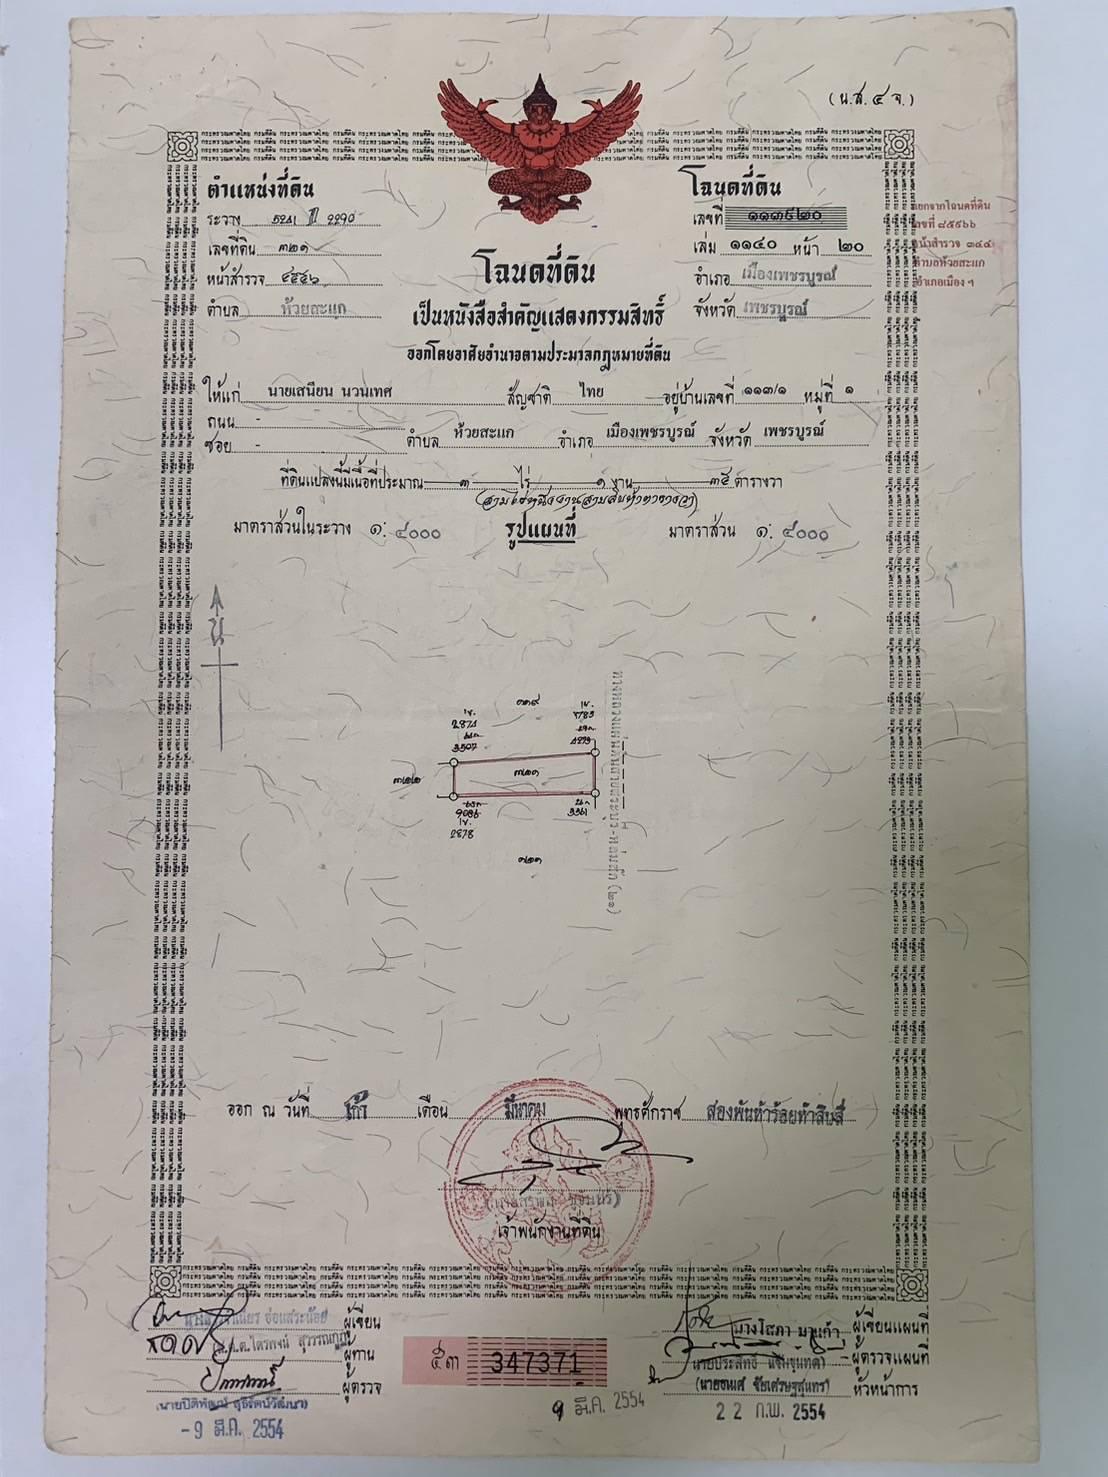 (น.ส. ๔ จ.)
ตำแหน่งที่ดิน
ระวาง 5241 II 2290
เลขที่ดิน ๓๒๑
หน้าสำรวจ ๔๕๔๖
ตำบล ห้วยสะแก
โฉนดที่ดิน
เลขที่ ๑๑๓๙๒๐
เล่ม ๑๑๔๐ หน้า ๒๐
อำเภอ เมืองเพชรบูรณ์
จังหวัด เพชรบูรณ์
แยกจากโฉนดที่ดิน
เลขที่ ๘๕๙๖๖
หน้าสำรวจ ๓๔๔
ตำบลห้วยสะแก
อำเภอเมือง ฯ
โฉนดที่ดิน
เป็นหนังสือสำคัญแสดงกรรมสิทธิ์
ออกโดยอาศัยอำนาจตามประมวลกฎหมายที่ดิน
ให้แก่ นายเสนียน นวนเทศ สัญชาติ ไทย อยู่บ้านเลขที่ ๑๑๓/๑ หมู่ที่ ๑
ถนน -
ซอย - ตำบล ห้วยสะแก อำเภอ เมืองเพชรบูรณ์ จังหวัด เพชรบูรณ์
ที่ดินแปลงนี้มีเนื้อที่ประมาณ ๓ ไร่ ๑ งาน ๓๕ ตารางวา
(สามไร่หนึ่งงานสามสิบห้าตารางวา)
มาตราส่วนในระวาง ๑: ๔๐๐๐ รูปแผนที่ มาตราส่วน ๑: ๔๐๐๐
น
๓๒๒
๓๒๑
ออก ณ วันที่ เก้า เดือน มีนาคม พุทธศักราช สองพันห้าร้อยห้าสิบสี่
เจ้าพนักงานที่ดิน
ผู้เขียน
ผู้ทาน
ผู้ตรวจ
(นายปิติพัฒน์ สุธีรัตน์วัฒนา)
- 9 มี.ค. 2554
๕๓ 347371
9 มี.ค. 2554
ผู้เขียนแผนที่
ผู้ตรวจแผนที่
หัวหน้าการ
22 ก.พ. 2554